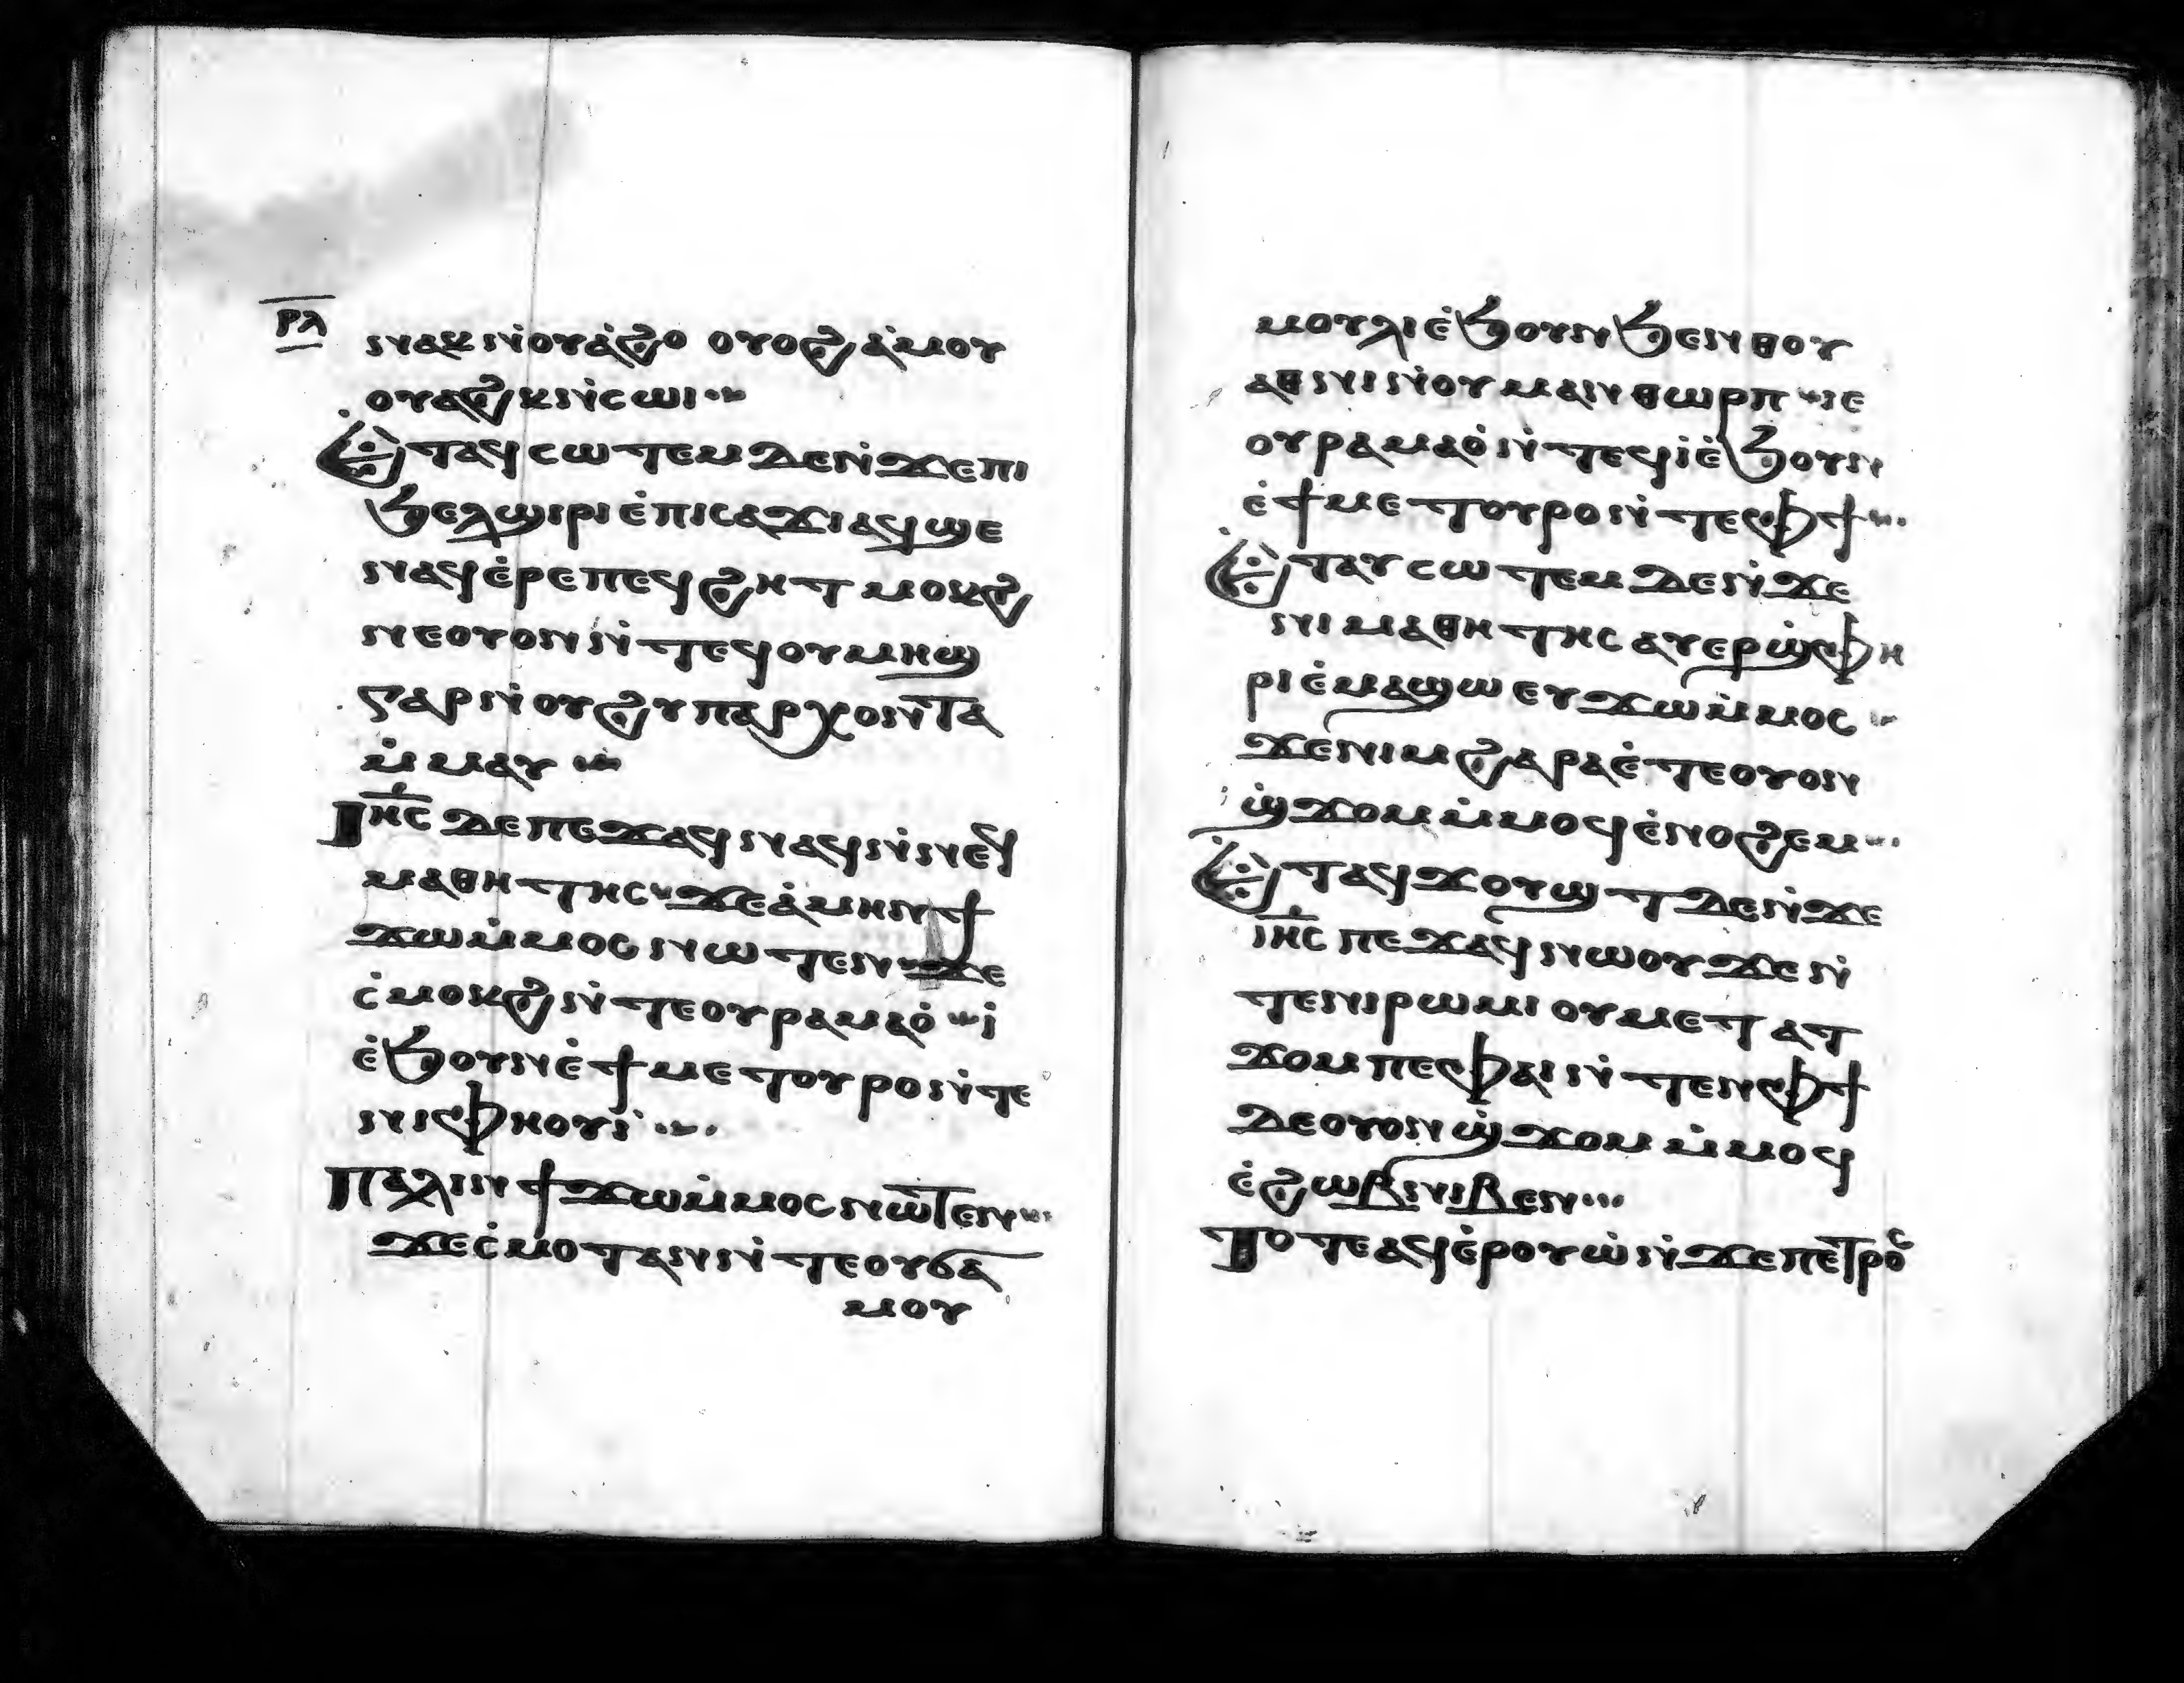 ⲣⲗ
ⲛⲁⲕ ⲛ̇ⲟⲩⲁ̇ϩⲟ ⲟⲩⲟϩ ⲁ̇ⲙⲟⲩ
ⲟⲩⲁϩⲕ ⲛ̇ⲥⲱⲓ
Ⲉⲧⲁϥⲥⲱⲧⲉⲙ ⲇⲉ ⲛ̇ϫⲉ ⲡⲓ
ϧⲉⲗϣⲓⲣⲓ ⲉ̇ⲡⲓⲥⲁϫⲓ ⲁϥϣⲉ
ⲛⲁϥ ⲉ̇ⲣⲉ ⲡⲉϥϩⲏⲧ ⲙⲟⲕϩ
ⲛⲉ ⲟⲩⲟⲛ ⲛ̇ⲧⲉϥ ⲟⲩⲙⲏϣ
ⲅⲁⲣ ⲛ̇ⲟⲩϩⲩⲡⲁⲣⲭⲟⲛⲧⲁ
ⲙ̇ⲙⲁⲩ
Ⲓⲏ̅ⲥ̅ ⲇⲉ ⲡⲉϫⲁϥ ⲛⲁϥ ⲛ̇ⲛⲉϥ
ⲙⲁⲑⲏⲧⲏⲥ ϫⲉ ⲁ̇ⲙⲏⲛ ϯ
ϫⲱ ⲙ̇ⲙⲟⲥ ⲛⲱⲧⲉⲛ ϫⲉ
ⲥ̇ⲙⲟⲕϩ ⲛ̇ⲧⲉ ⲟⲩⲣⲁⲙⲁⲟ̇ ⲓ̇
ⲉ̇ϧⲟⲩⲛ ⲉ̇ϯⲙⲉⲧⲟⲩⲣⲟ ⲛ̇ⲧⲉ
ⲛⲓⲫⲏⲟⲩⲓ̇
Ⲡⲁⲗⲓⲛ ϯϫⲱ ⲙ̇ⲙⲟⲥ ⲛⲱⲧⲉⲛ
ϫⲉ ⲥ̇ⲙⲟⲧⲁⲛ ⲛ̇ⲧⲉ ⲟⲩϭⲁ
ⲙⲟⲩ
ⲙⲟⲩⲗ ⲓ ⲉ̇ϧⲟⲩⲛ ϧⲉⲛ ⲑⲟⲩ
ⲁⲑⲛⲓ ⲛ̇ⲟⲩⲙⲁⲛⲑⲱⲣⲡ ⲓⲉ
ⲟⲩⲣⲁⲙⲁⲟ̇ ⲛ̇ⲧⲉϥⲓ̇ ⲉ̇ϧⲟⲩⲛ
ⲉ̇ϯⲙⲉⲧⲟⲩⲣⲟ ⲛ̇ⲧⲉ ⲫϯ
Ⲉⲧⲁⲩⲥⲱⲧⲉⲙ ⲇⲉ ⲛ̇ϫⲉ
ⲛⲓⲙⲁⲑⲏⲧⲏⲥ ⲁⲩⲉⲣϣ̇ⲫⲏ
ⲣⲓ ⲉ̇ⲙⲁϣⲱ ⲉⲩϫⲱ ⲙ̇ⲙⲟⲥ
ϫⲉ ⲛⲓⲙ ϩⲁⲣⲁ ⲉ̇ⲧⲉ ⲟⲩⲟⲛ
ϣ̇ϫⲟⲙ ⲙ̇ⲙⲟϥ ⲉ̇ⲛⲟϩⲉⲙ
Ⲉⲧⲁϥϫⲟⲩϣⲧ ⲇⲉ ⲛ̇ϫⲉ
ⲓⲏ̅ⲥ̅ ⲡⲉϫⲁϥ ⲛⲱⲟⲩ ϫⲉ ⲛ̇
ⲧⲉⲛ ⲛⲓⲣⲱⲙⲓ ⲟⲩⲙⲉⲧⲁⲧ
ϫⲟⲙ ⲡⲉ ⲫⲁⲓ ⲛ̇ⲧⲉⲛ ⲫϯ
ⲇⲉ ⲟⲩⲟⲛ ϣ̇ϫⲟⲙ ⲙ̇ⲙⲟϥ
ⲉ̇ϩⲱⲃ ⲛⲓⲃⲉⲛ
Ⲧⲟⲧⲉ ⲁϥⲉ̇ⲣⲟⲩⲱ̇ ⲛ̇ϫⲉ ⲡⲉⲧⲣⲟⲥ